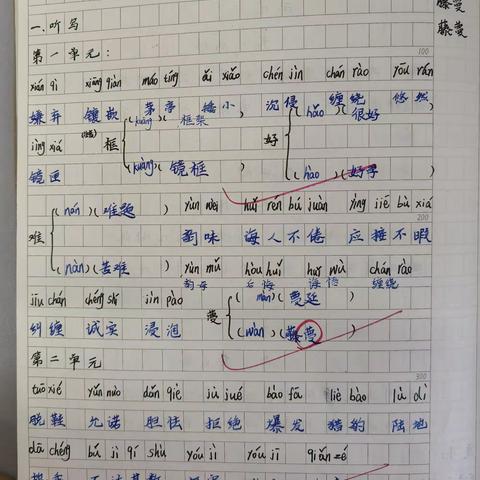 藤蔓
藤蔓
一.听写
第一单元:
100
xián qì xiāng qiàn máo tíng ǎi xiǎo chén jìn chán rào yōu rán
嫌弃 镶嵌 茅亭 矮小 沉浸 缠绕 悠然
jìng xiá 框 (kuàng)(框架) 好 (hǎo)(很好)
镜匣 (kuàng)(镜框) (hào)(好学)
难 (nán)(难题) yùn wèi huǐ rén bú juàn yìng jiē bù xiá
200
韵味 诲人不倦 应接不暇
(nàn)(苦难) yùn mǔ hòu huǐ huǐ wù chán rào
韵母 后悔 缠绕
jiū chán chéng shí jìn pào 蔓 (màn)(蔓延)
纠缠 诚实 浸泡 (wàn)(藤蔓)
第二单元
300
tuō xié yǔn nuò dǎn qiè jù jué bào fā liè bào lù dì
脱鞋 允诺 胆怯 拒绝 爆发 猎豹 陆地
dā chéng bú jì qí shù yóu jì